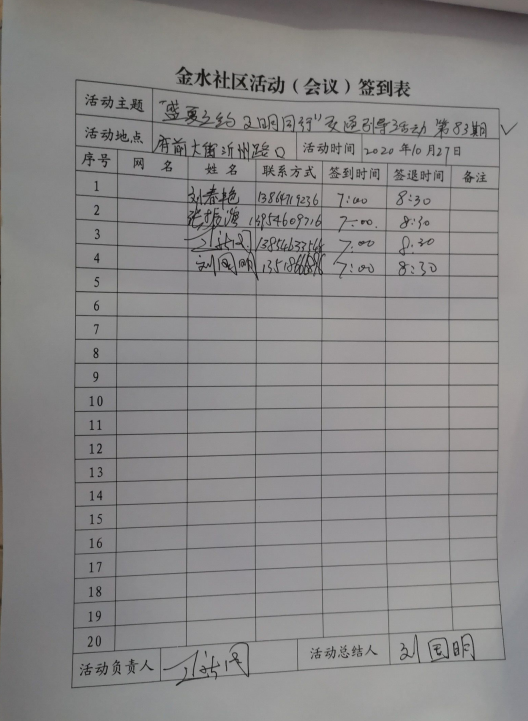 金水社区活动（会议）签到表
活动主题 "盛夏之约 文明同行"交通引导活动 第83期
活动地点 府前大街沂州路口 活动时间 2020年10月27日
序号 网 名 姓 名 联系方式 签到时间 签退时间 备注
1 刘春艳 13864719236 7:00 8:30
2 张振海 7:00 8:30
3 7:00 8:30
4 刘国明 7:00 8:30
5
6
7
8
9
10
11
12
13
14
15
16
17
18
19
20
活动负责人 活动总结人 刘国明